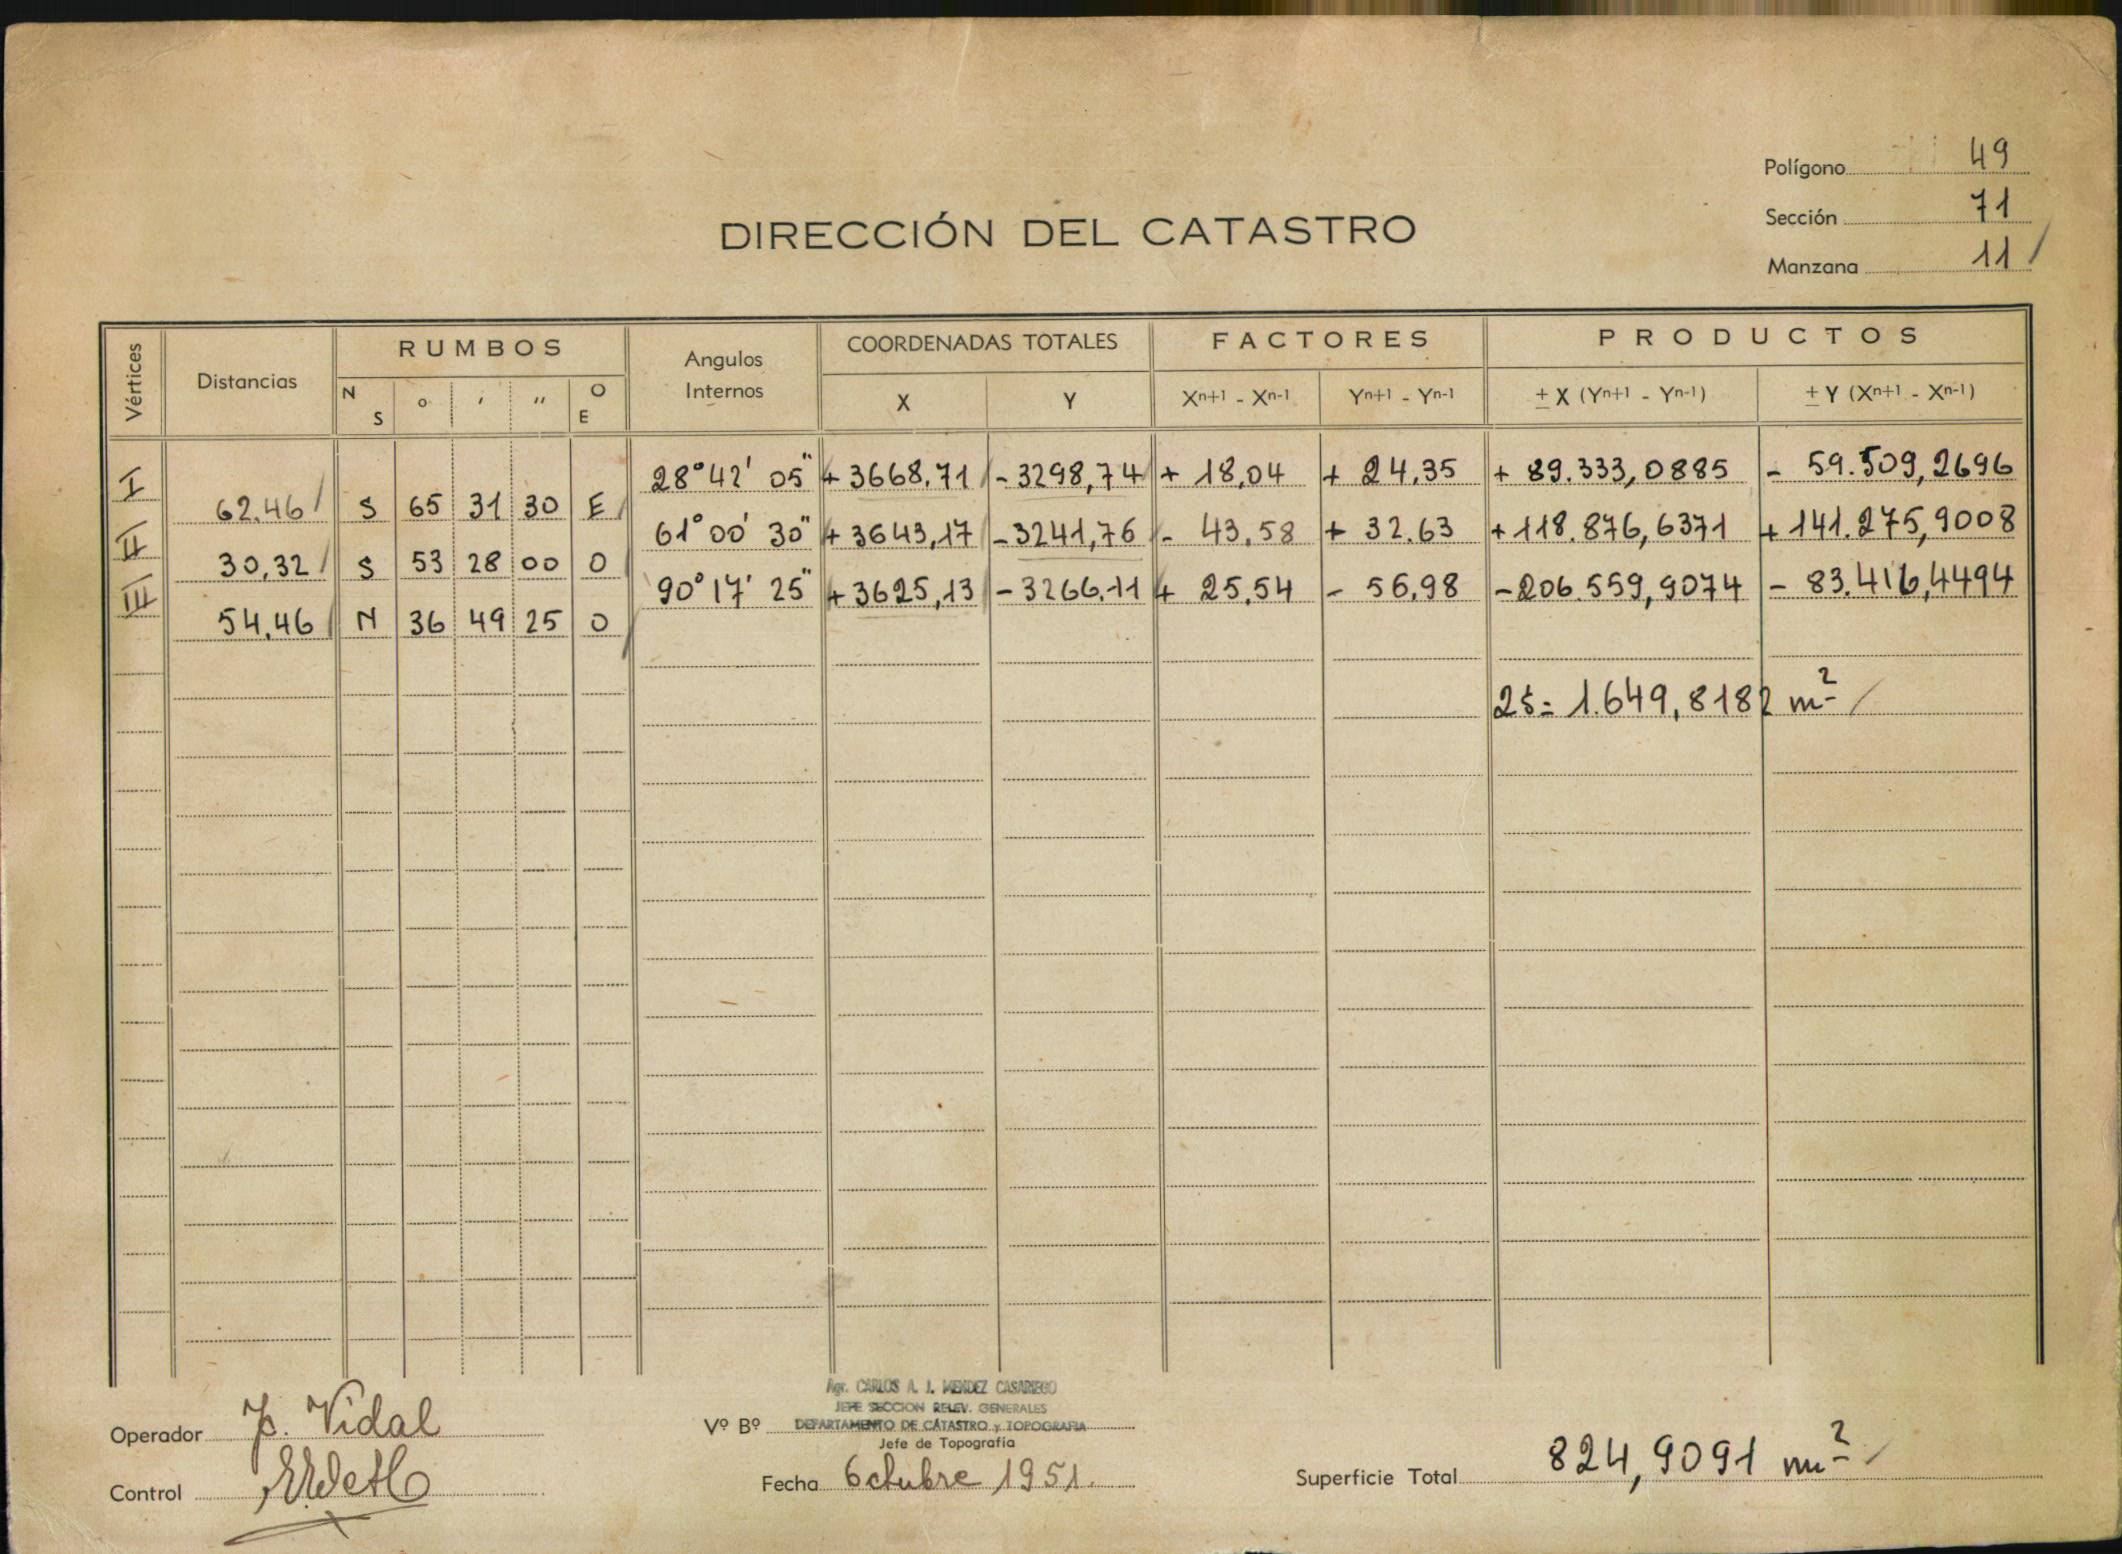 Polígono 49
Sección 71
Manzana 11
DIRECCIÓN DEL CATASTRO
Vértices Distancias RUMBOS Angulos Internos COORDENADAS TOTALES FACTORES PRODUCTOS
N S o ' '' O E X Y Xn+1 - Xn-1 Yn+1 - Yn-1 ± X (Yn+1 - Yn-1) ± Y (Xn+1 - Xn-1)
I 28° 42' 05" + 3668,71 - 3298,74 + 18,04 + 24,35 + 89.333,0885 - 59.509,2696
62.46 S 65 31 30 E
II 61° 00' 30" + 3643,17 - 3241,76 - 43,58 + 32.63 + 118.876,6371 + 141.275,9008
30,32 S 53 28 00 O
III 90° 17' 25" + 3625,13 - 3266.11 + 25,54 - 56,98 - 206.559,9074 - 83.416,4494
54,46 N 36 49 25 O
2s = 1.649,8182 m²
Operador J. Vidal
Vº Bº
Agr. CARLOS A. J. MENDEZ CASARIEGO
JEFE SECCION RELEV. GENERALES
DEPARTAMENTO DE CATASTRO y TOPOGRAFIA
Jefe de Topografía
Control
Fecha Octubre 1951.
Superficie Total 824,9091 m²